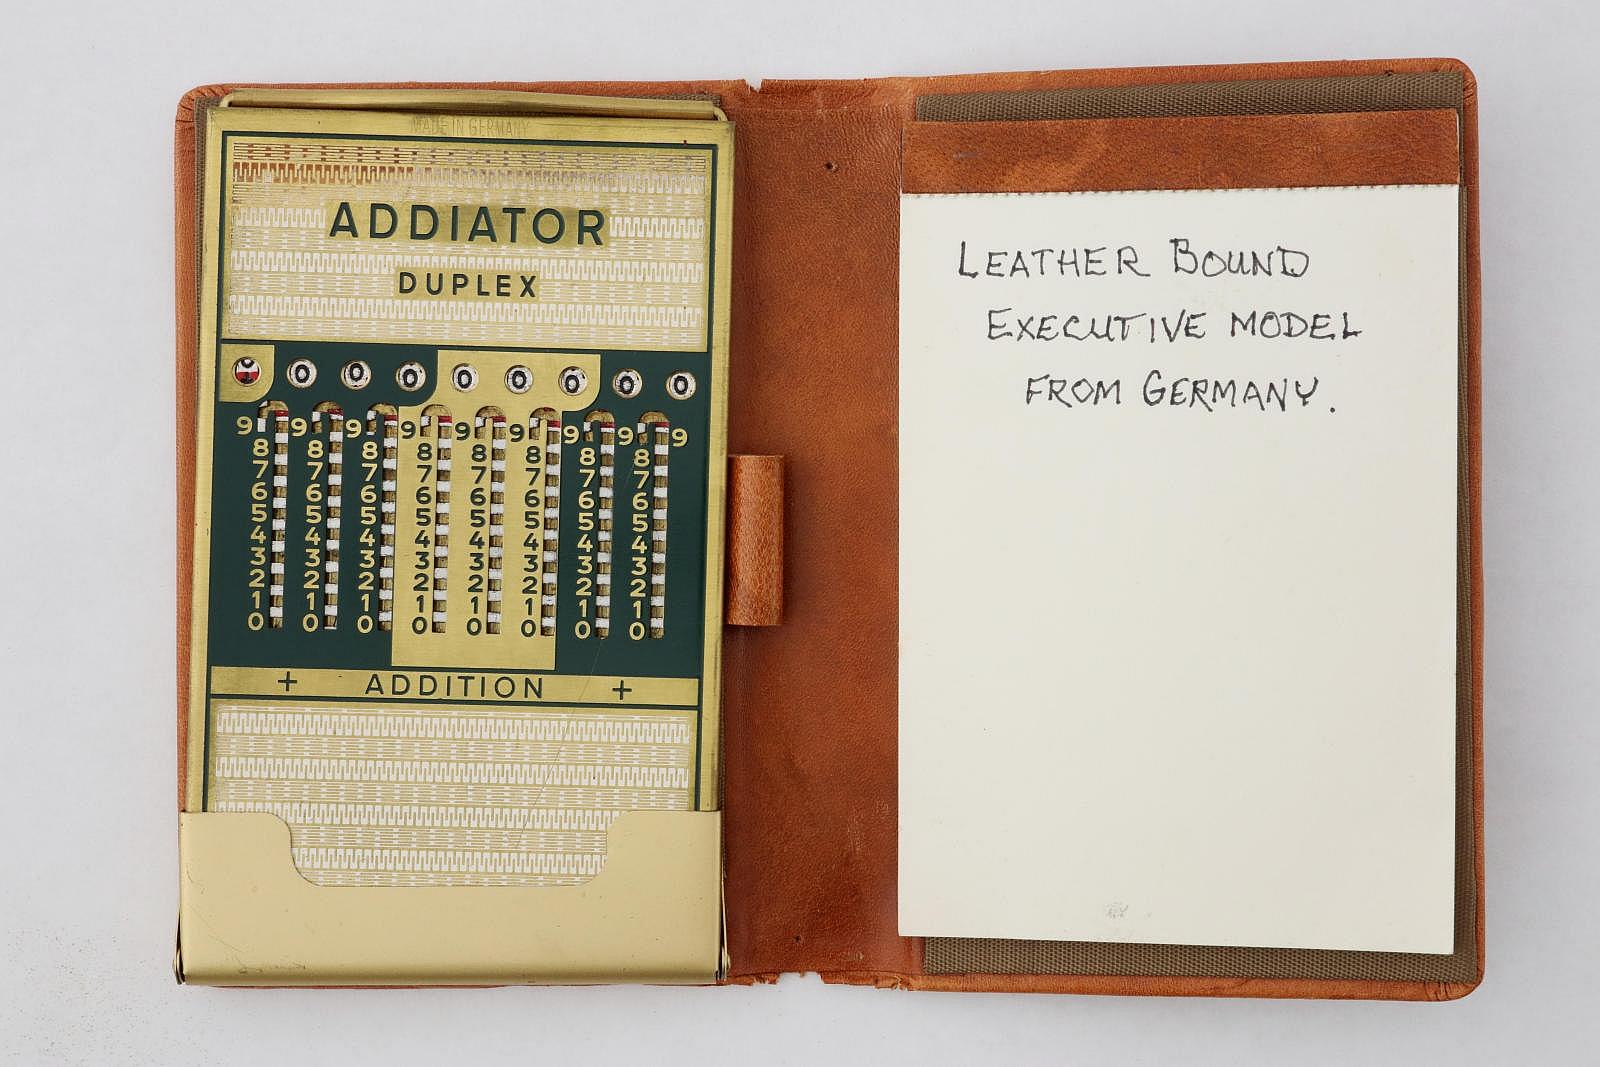 MADE IN GERMANY
ADDIATOR
DUPLEX
0 0 0 0 0 0 0 0
9 9 9 9 9 9 9 9 9
8 8 8 8 8 8 8 8
7 7 7 7 7 7 7 7
6 6 6 6 6 6 6 6
5 5 5 5 5 5 5 5
4 4 4 4 4 4 4 4
3 3 3 3 3 3 3 3
2 2 2 2 2 2 2 2
1 1 1 1 1 1 1 1
0 0 0 0 0 0 0 0
+ ADDITION +
LEATHER BOUND
EXECUTIVE MODEL
FROM GERMANY.